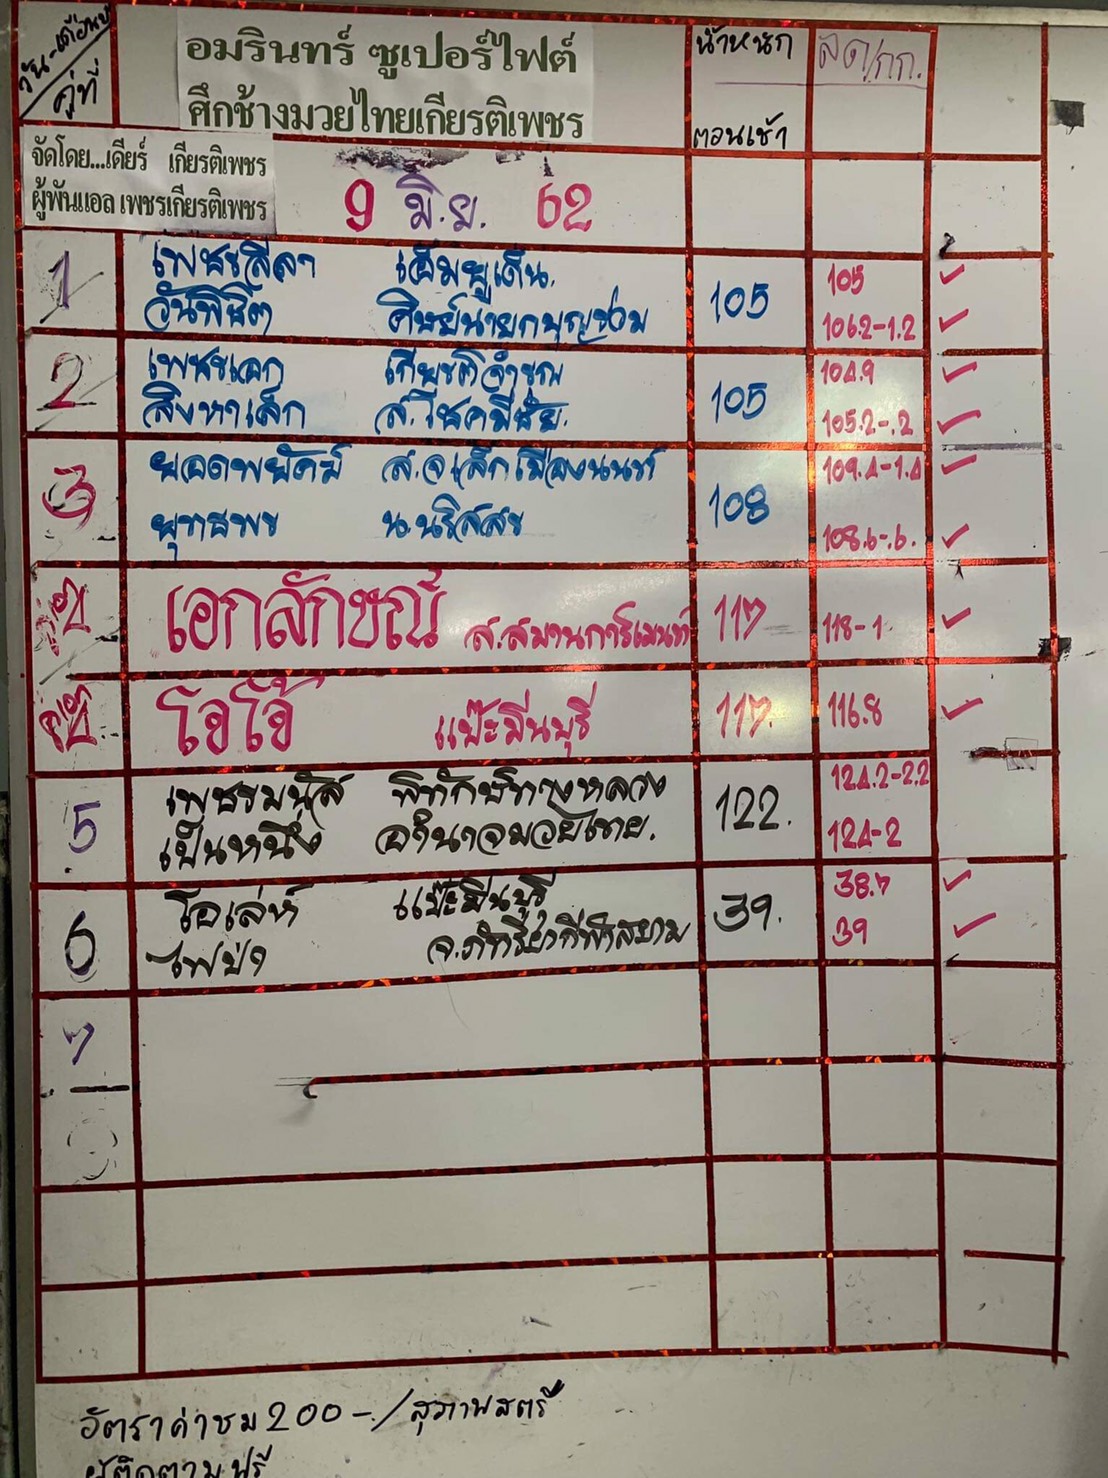 วัน-เดือน-ปี
คู่ที่
อมรินทร์ ซูเปอร์ไฟต์
ศึกช้างมวยไทยเกียรติเพชร
น้ำหนัก
ตอนเช้า
ลด/กก.
จัดโดย...เดียร์ เกียรติเพชร
ผู้พันแอล เพชรเกียรติเพชร
9 มิ.ย. 62
1 เพชรลีลา เอ็มยูเด็น. 105 105
วันพิชิต ศิษย์นายกบุญช่วม 106.2-1.2
2 เพชรเอก เกียรติจำรูญ 105 104.9
สิงหาเล็ก ส.โชคมีชัย. 105.2-.2
3 ยอดพยัคฆ์ ส.จ.เล็กเมืองนนท์ 108 109.4-1.4
ยุทธพร น.นริสสร 108.6-.6.
คู่เอก เอกลักษณ์ ส.สมานการ์เมนท์ 117 118-1
คู่เอก โอโอ้ แป๊ะมีนบุรี 117. 116.8
5 เพชรมนัส พิทักษ์ทางหลวง 122. 124.2-2.2
เป็นหนึ่ง อำนาจมวยไทย. 124-2
6 โอเล่ห์ แป๊ะมีนบุรี 39. 38.7
ไฟป่า 39
7
อัตราค่าชม 200-./สุภาพสตรี
ผู้ติดตาม ฟรี